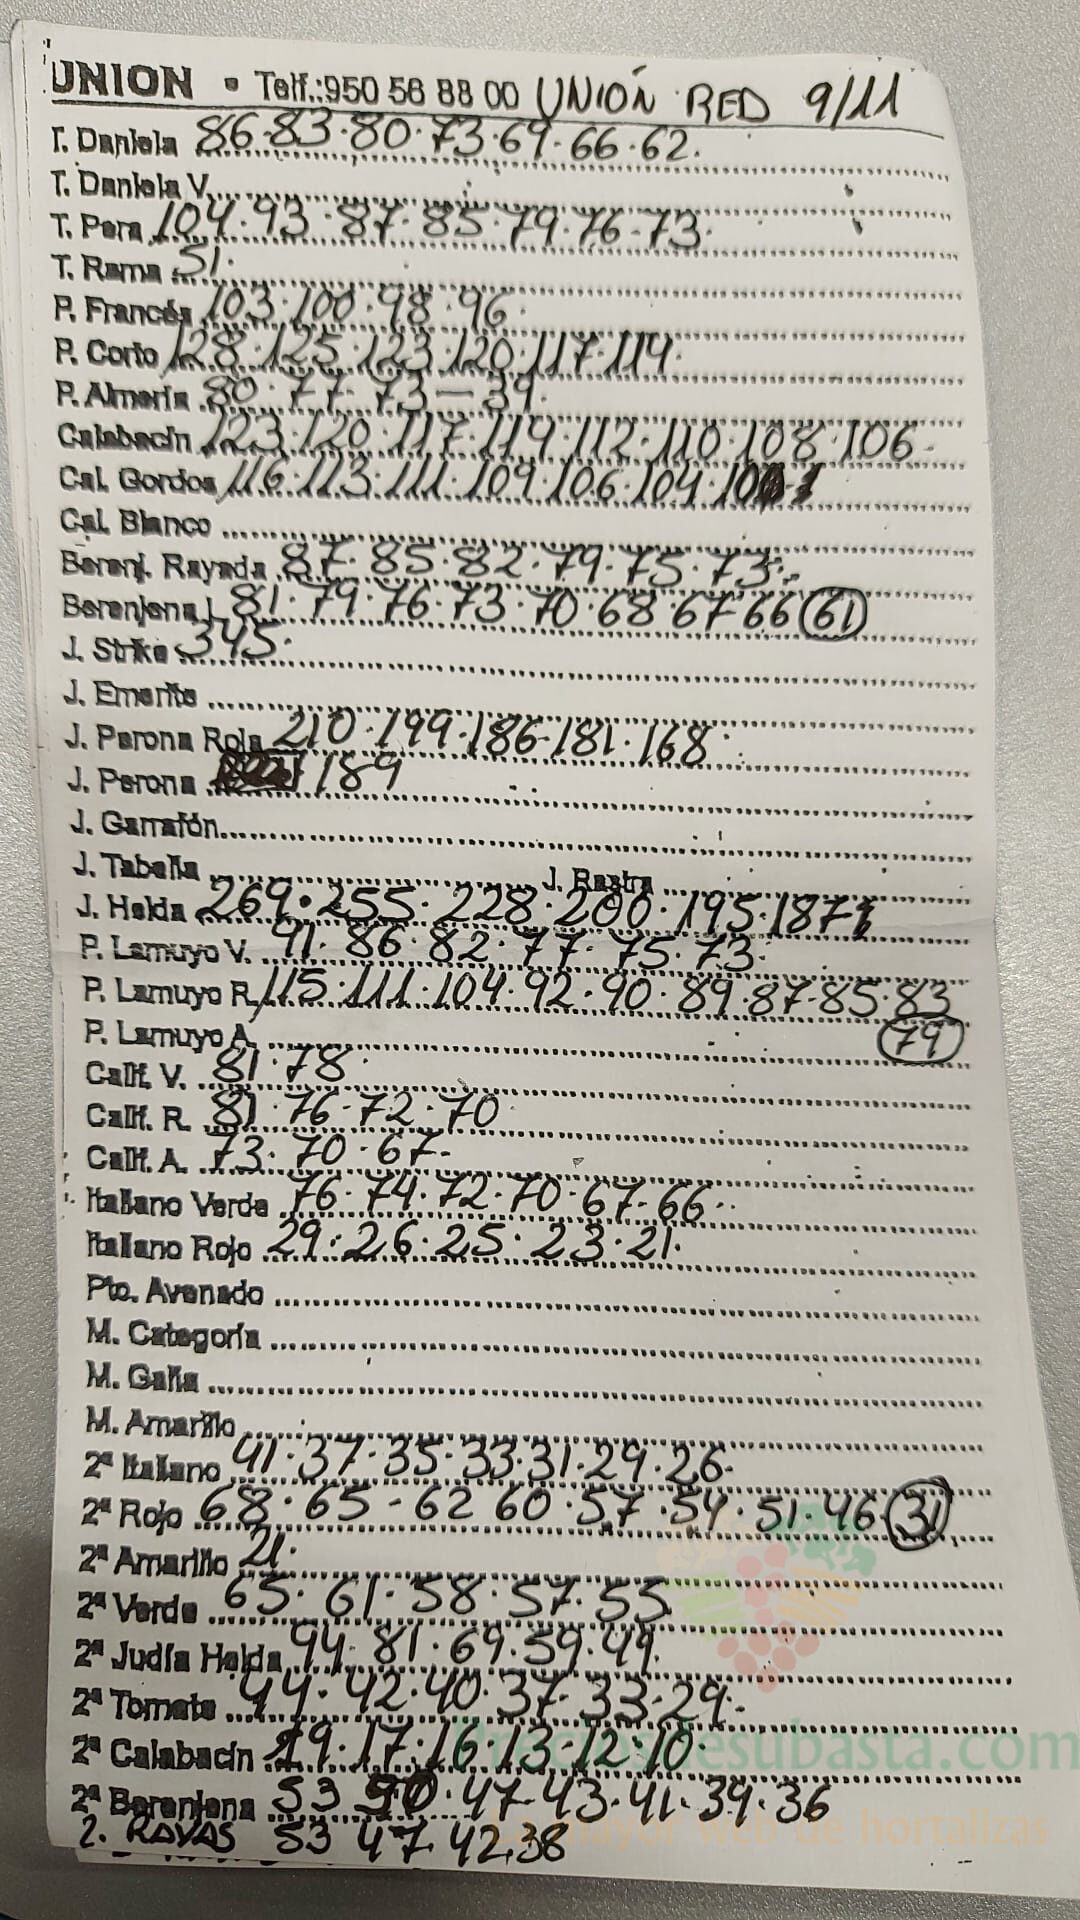 UNION • Telf.:950 56 88 00 UNIÓN RED 9/11
T. Daniela 86·83·80·73·69·66·62.
T. Daniela V.
T. Pera 104·93·87·85·79·76·73.
T. Rama 51.
P. Francés 103·100·98·96.
P. Corto 128·125·123·120·117·114.
P. Almería 80·77·73—39.
Calabacín 123·120·117·114·112·110·108·106
Cal. Gordos 116·113·111·109·106·104
Cal. Blanco
Berenj. Rayada 87·85·82·79·75·73.
Berenjena L 81·79·76·73·70·68·67·66 (61)
J. Strike 345.
J. Emerite
J. Perona Roja 210·199·186·181·168
J. Perona 189
J. Garrafón
J. Tabella J. Rastra
J. Helda 269·255·228·200·195·187
P. Lamuyo V. 91·86·82·77·75·73.
P. Lamuyo R. 115·111·104·92·90·89·87·85·83
P. Lamuyo A. (79)
Calif. V. 81·78.
Calif. R. 81·76·72·70
Calif. A. 73·70·67.
Italiano Verde 76·74·72·70·67·66.
Italiano Rojo 29·26·25·23·21.
Pto. Avenado
M. Categoría
M. Galia
M. Amarillo
2ª Italiano 41·37·35·33·31·29·26.
2ª Rojo 68·65-62 60·57·54·51·46 (31)
2ª Amarillo 21.
2ª Verde 65·61·58·57·55
2ª Judía Helda 94·81·69·59·49.
2ª Tomate 44·42·40·37·33·29.
2ª Calabacín 19·17·16·13·12·10.
2ª Berenjena 53 50·47·43·41·39·36
2. RAYAS 53 47 42.38
Preciosdesubasta.com
La mayor web de hortalizas